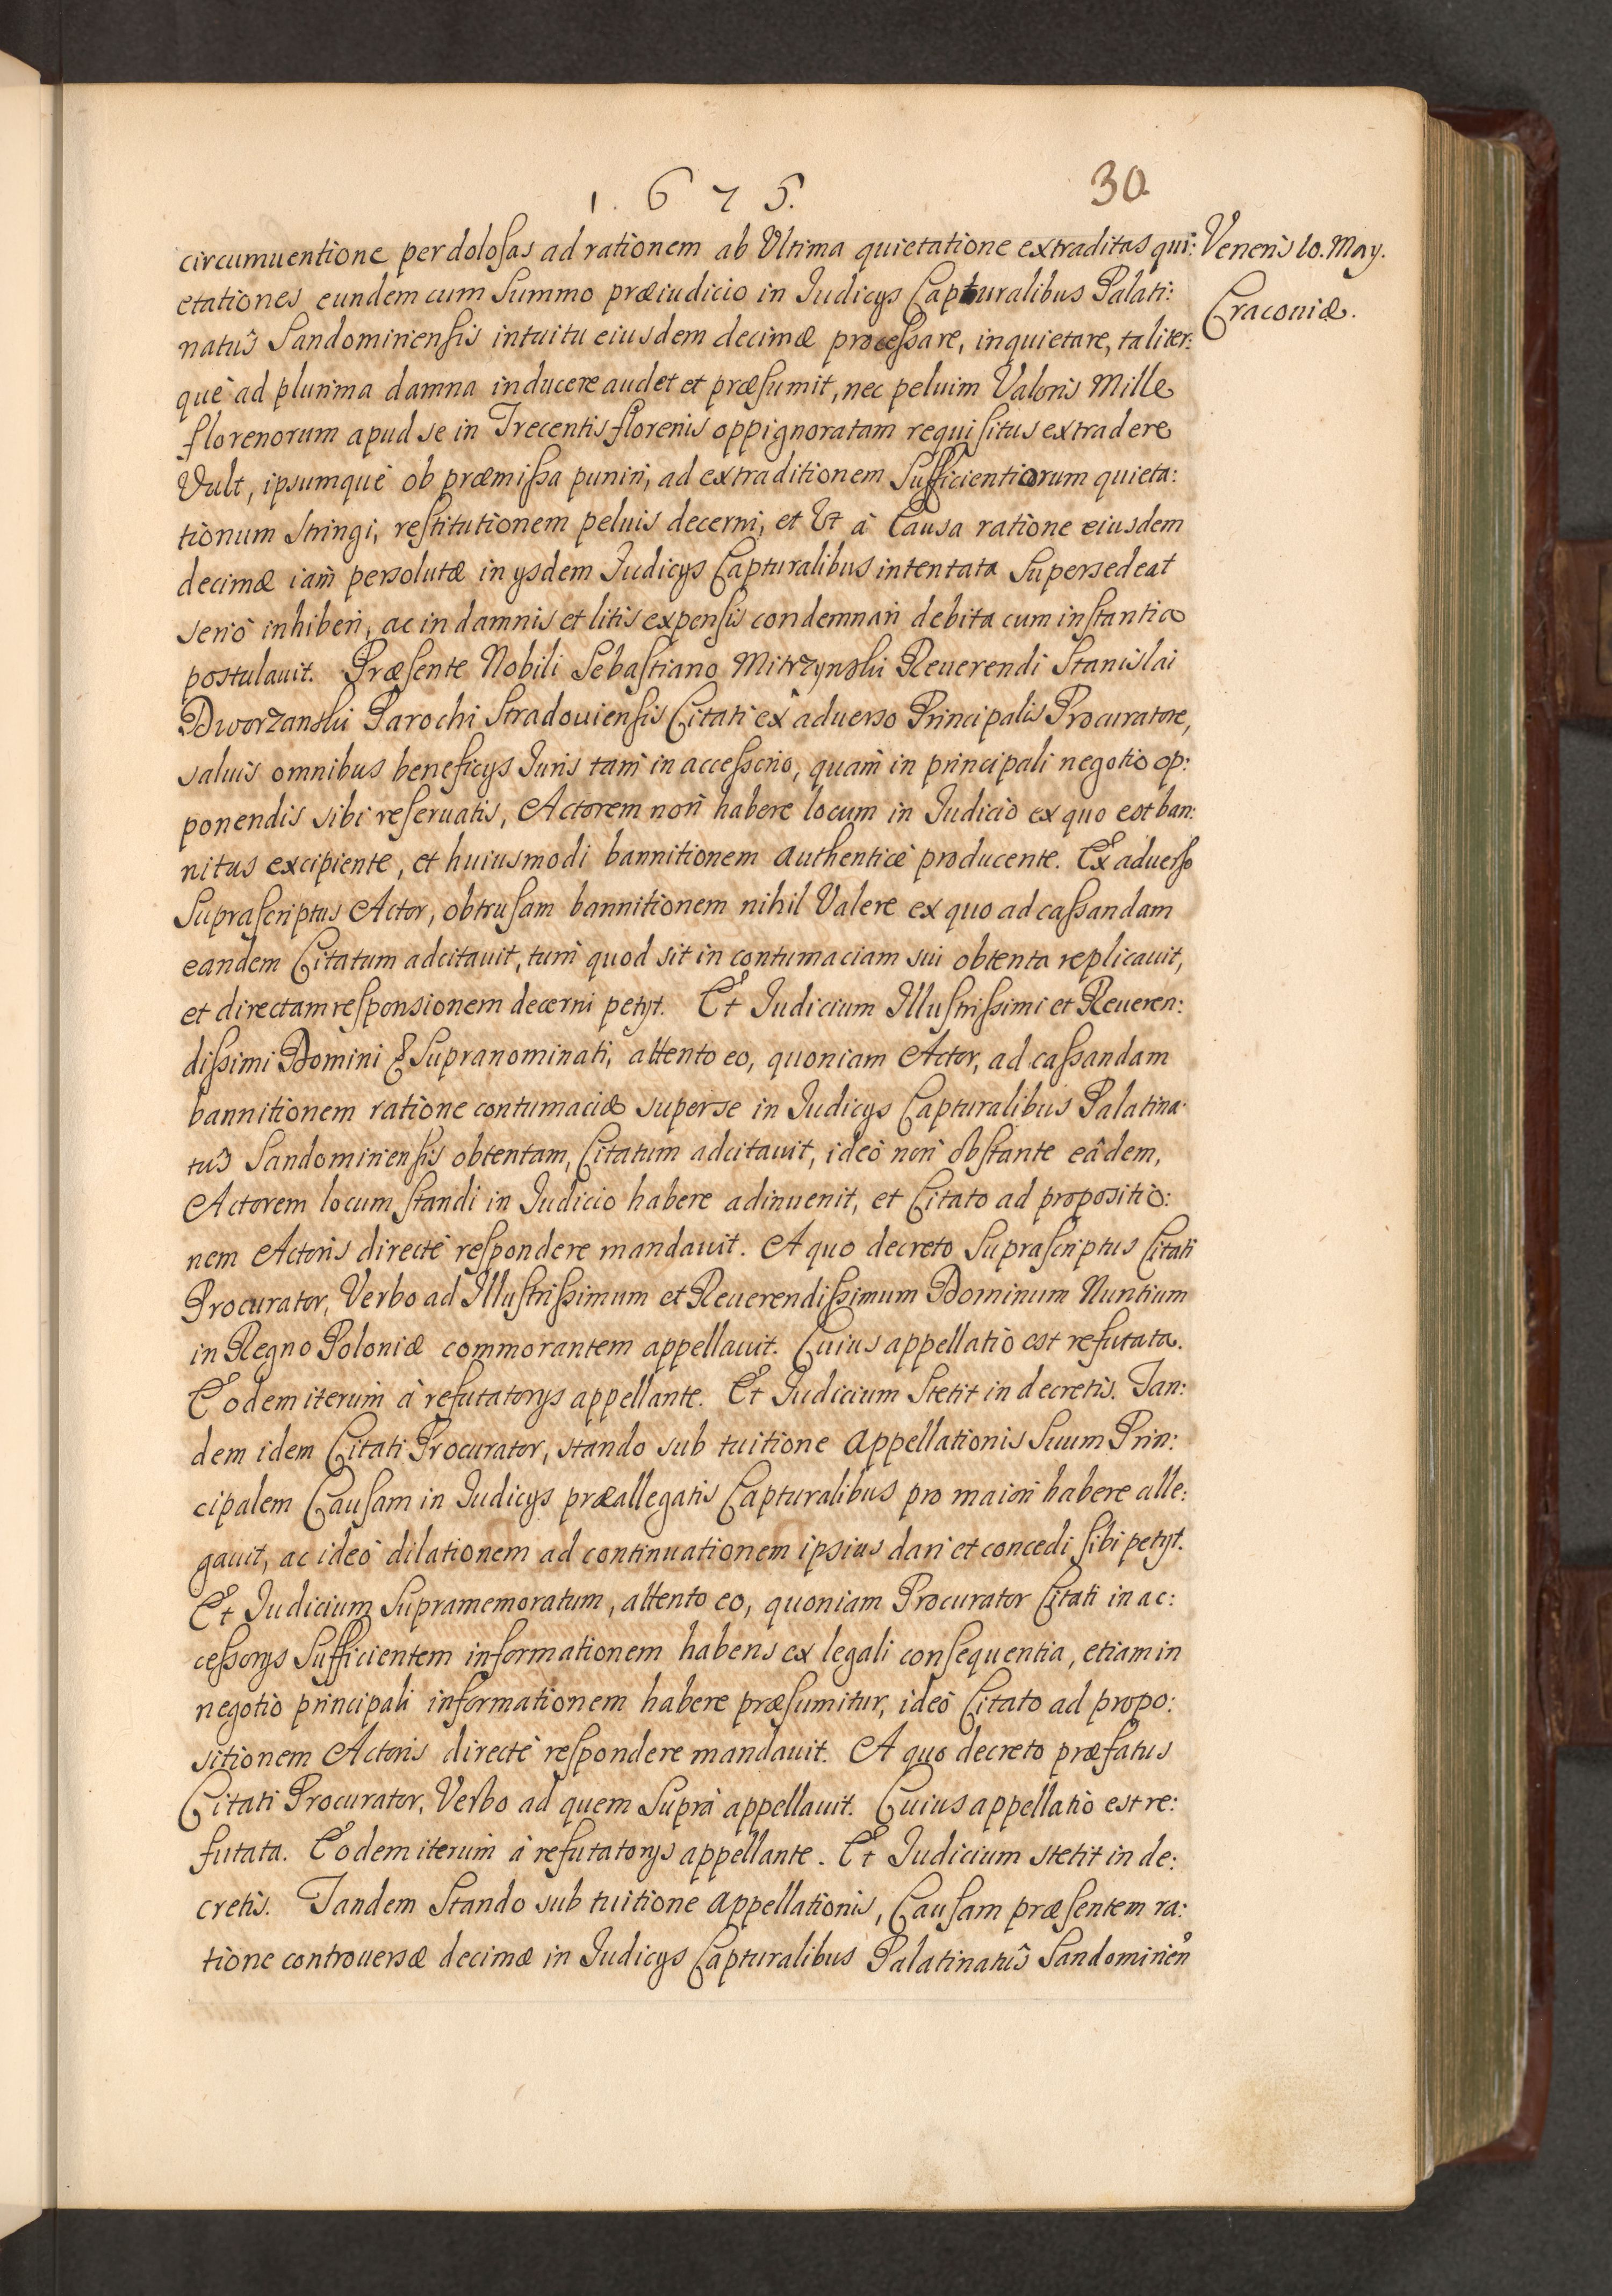 1. 6 7 5.
30
circumuentione per dolosas ad rationem ab Vltima quietatione extraditas qui:
Veneris 10. May.
etationes eundem cum Summo præiudicio in Iudicys Capturalibus Palati:
Craconiæ.
natûs Sandomiriensis intuitu eiusdem decimæ processare, inquietare, taliter:
què ad plurima damna inducere audet et præsumit, nec peluim Valoris Mille
florenorum apud se in Trecentis florenis oppignoratam requisitus extradere
Vult, ipsumquè ob præmissa puniri, ad extraditionem Sufficientiorum quieta:
tionum Stringi, restitutionem peluis decerni, et Vt à Causa ratione eiusdem
decimæ iam persolutæ in ysdem Iudicys Capturalibus intentata Supersedeat
seriò inhiberi, ac in damnis et litis expensis condemnari debita cum instantia
postulauit. Præsente Nobili Sebastiano Mitrzynski Reuerendi Stanislai
Dworzanski Parochi Stradouiensis Citati ex aduerso Principalis Procuratore,
saluis omnibus beneficys Iuris tam in accessorio, quam in principali negotio op:
ponendis sibi reseruatis, Actorem non habere locum in Iudicio ex quo est ban:
nitus excipiente, et huiusmodi bannitionem authenticè producente. Ex aduerso
Suprascriptus Actor, obtrusam bannitionem nihil Valere ex quo ad cassandam
eandem Citatum adcitauit, tum quod sit in contumaciam sui obtenta replicauit,
et directam responsionem decerni petyt. Et Iudicium Illustrissimi et Reueren:
dissimi Domini & Supranominati, attento eo, quoniam Actor, ad cassandam
bannitionem ratione contumaciæ super se in Iudicys Capturalibus Palatina:
tûs Sandomiriensis obtentam, Citatum adcitauit, ideò non obstante eâdem,
Actorem locum standi in Iudicio habere adinuenit, et Citato ad propositio:
nem Actoris directè respondere mandauit. A quo decreto Suprascriptus Citati
Procurator, Verbo ad Illustrissimum et Reuerendissimum Dominum Nuntium
in Regno Poloniæ commorantem appellauit. Cuius appellatio est refutata.
Eodem iterum à refutatorys appellante. Et Iudicium Stetit in decretis. Tan:
dem idem Citati Procurator, stando sub tuitione appellationis Suum Prin:
cipalem Causam in Iudicys præallegatis Capturalibus pro maiori habere alle:
gauit, ac ideò dilationem ad continuationem ipsius dari et concedi sibi petyt.
Et Iudicium Supramemoratum, attento eo, quoniam Procurator Citati in ac:
cessorys Sufficientem informationem habens ex legali consequentia, etiam in
negotio principali informationem habere præsumitur, ideò Citato ad propo:
sitionem Actoris directè respondere mandauit. A quo decreto præfatus
Citati Procurator, Verbo ad quem Suprà appellauit. Cuius appellatio est re:
futata. Eodem iterum à refutatorys appellante. Et Iudicium stetit in de:
cretis. Tandem Stando sub tuitione appellationis, Causam præsentem ra:
tione controuersæ decimæ in Iudicys Capturalibus Palatinatûs Sandomirien